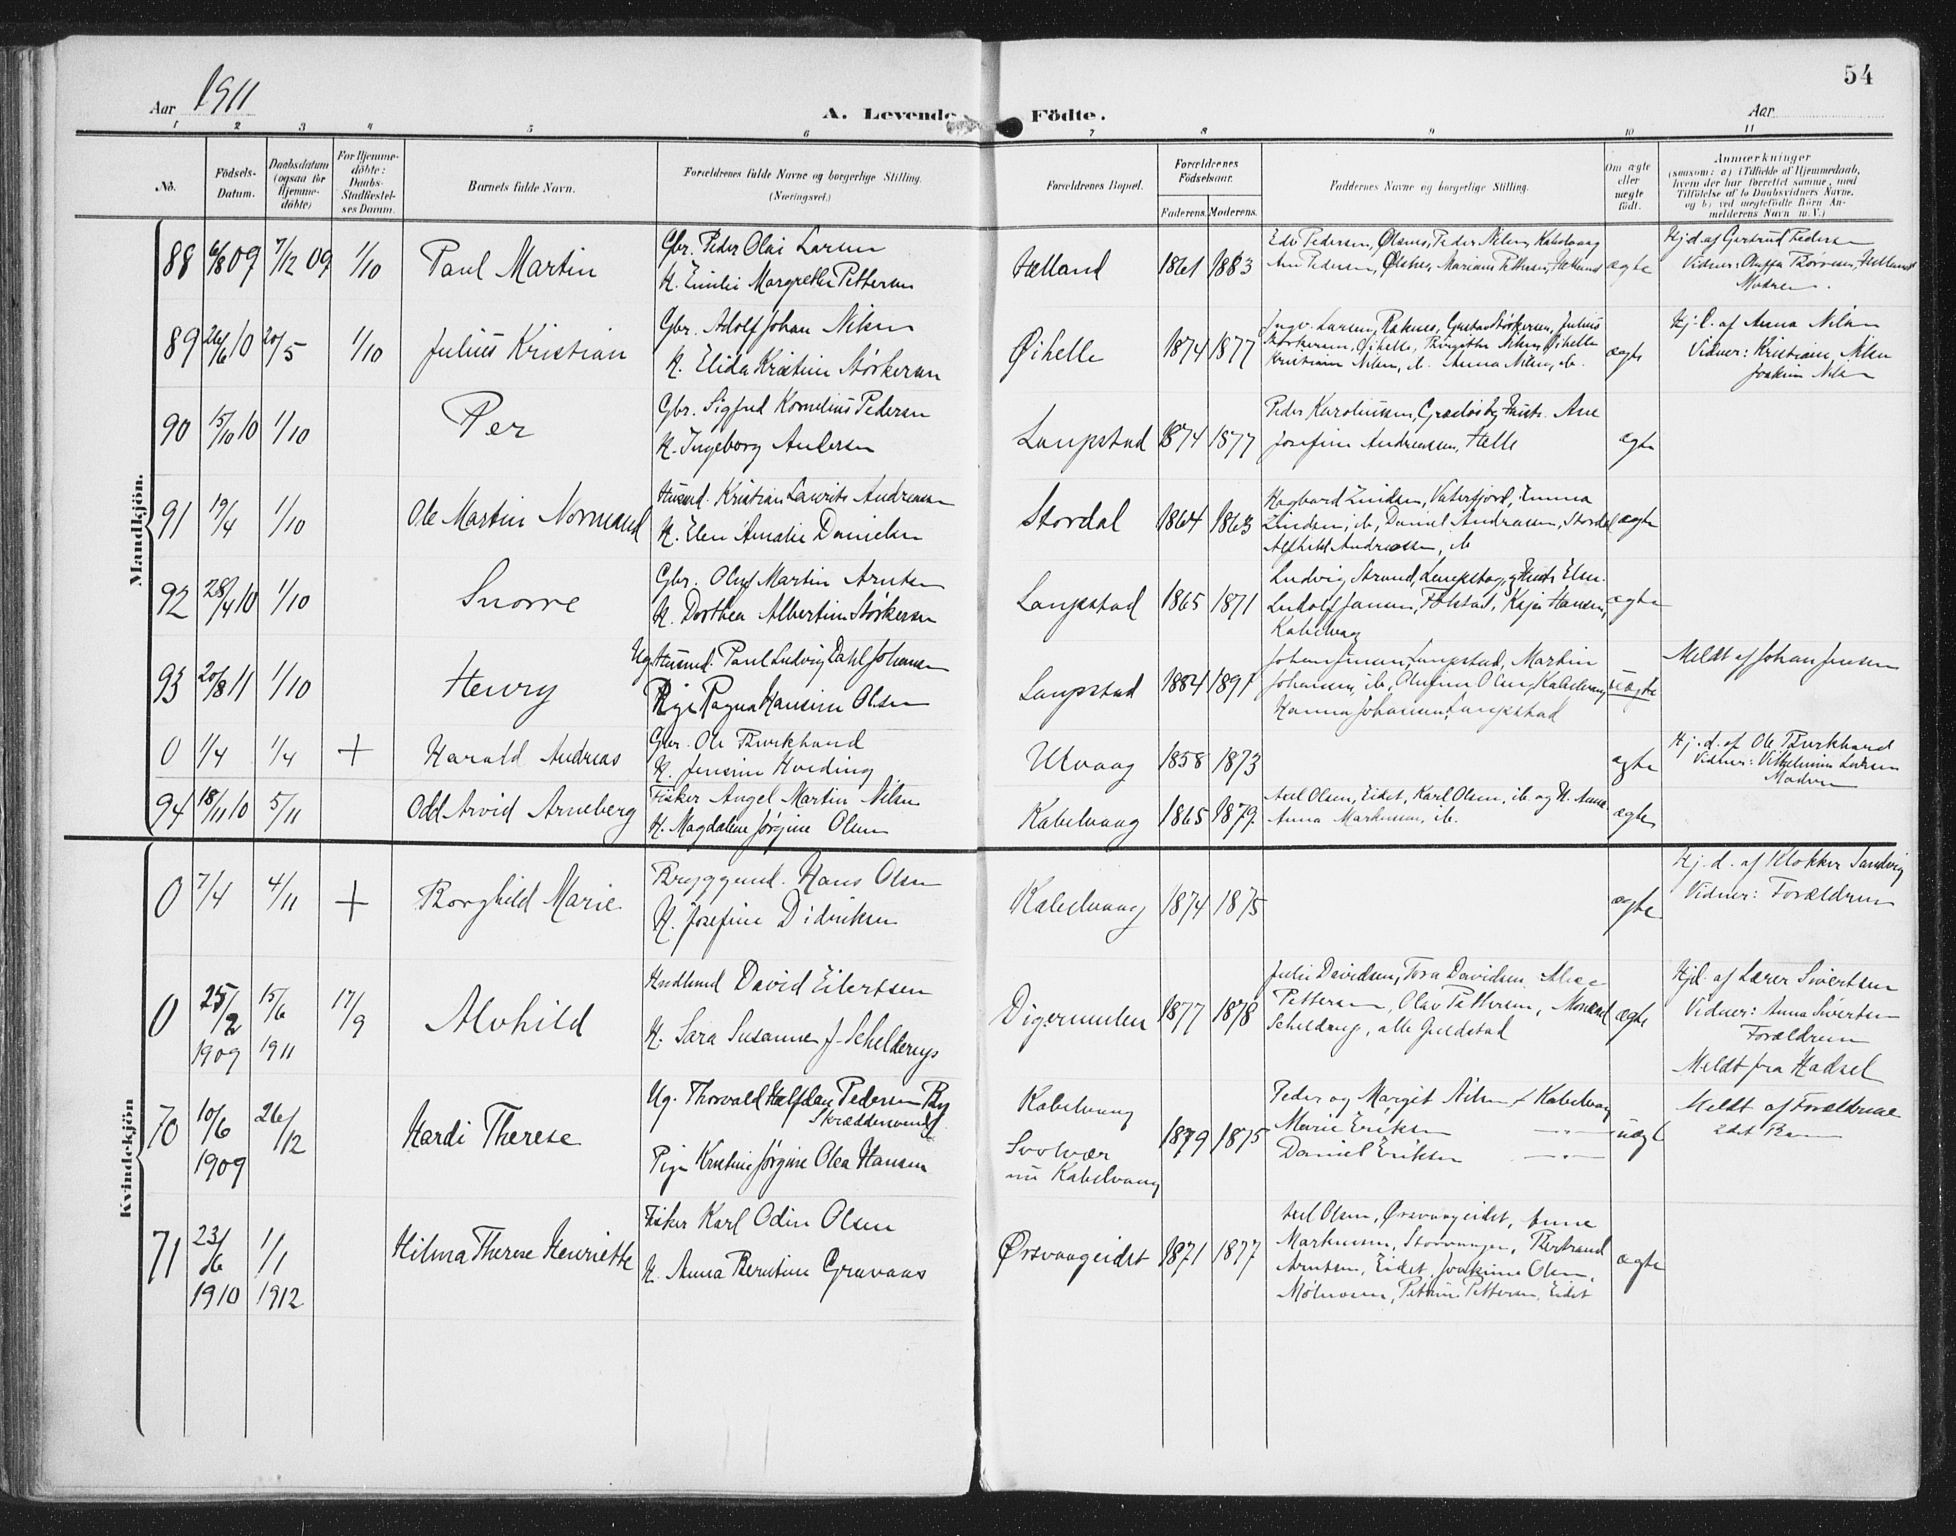 54
Aar 1911
A. Levende Födte.
Aar
1 2 3 4 5 6 7 8 9 10 11
No.
Födsels-Datum.
Daabsdatum (ogsaa for Hjemme-döbte)
For Hjemme-döbte: Daabs-Stadfæstel-ses Datum.
Barnets fulde Navn.
Forældrenes fulde Navne og borgerlige Stilling.
(Næringsvei.)
Forældrenes Bopæl.
Forældrenes Födselsaar.
Faderens. Moderens.
Faddernes Navne og borgerlige Stilling.
Om ægte eller uægte födt.
Anmærkninger
(saasom: a) Tilfælde af Hjemmedaab,
hvem der har forrettet samme, med
Tilföielse af to Daabsvidners Navne,
og b) ved uægtefödte Börn An-
melderens Navn m. V.)
Mandkjön.
88 6/8 09 7/12 09 1/10 Paul Martin
Gbr. Peder Olai Larsen
H. Emilie Margrethe Pettersen
Helland 1861 1883
Pedersen, Peder Nilsen, Kabelvaag
ægte
Hj. d. af Gertrud Pedersen
Vidner: Helland
Modren.
89 26/6 10 20/5 1/10 Julius Kristian
Gbr. Adolf Johan Nilsen
H. Elida Kristine Størkersen
Øihelle 1874 1877
Ingv. Larsen, Raknes, Gustav Størkersen, Julius
Størkersen, Øihelle, Birgitte Nilsen, Øihelle
Kristian Nilsen, ib. Anna Nilsen, ib.
ægte
Hj. d. af Anna Nilsen
Vidner: Kristian Nilsen
Joakim Nilsen
90 15/10 10 1/10 Per
Gbr. Sigfred Kornelius Pedersen
H. Ingeborg Andersen
Laupstad 1874 1877
Peder Karoliussen, Ane
Josefine Andreassen, Helle
ægte
91 19/4 1/10 Ole Martin Normand
Husmd. Kristian Laurits Andreassen
H. Elen Amalie Danielsen
Stordal 1864 1863
Hagbard Zindsen, Vaterfjord, Emma
Zindsen, ib, Daniel Andreassen, Stordal
Alfhild Andreassen, ib
ægte
92 28/4 10 1/10 Snorre
Gbr. Oluf Martin Arntsen
H. Dorthea Albertine Størkersen
Laupstad 1865 1871
Ludvig Strand, Laupstad, og Hustr. Elen.
Ludolf Jansen, Kaja Hansen,
Kabelvaag
ægte
93 20/8 11 1/10 Henry
Ug. Husmd. Paul Ludvig Dahl Johansen
Pige Ragna Hansine Olsen
Laupstad 1884 1891
Johan Jensen, Laupstad, Martin
Johansen, ib, Olufine Olsen, Kabelvaag
Hanna Johansen, Laupstad
uægte
Meldt af Johan Jensen
0 1/4 1/4 + Harald Andreas
Gbr. Ole Burkhard
H. Jensine Hveding
Urvaag 1858 1873
ægte
Hj. d. af Ole Burkhard
Vidner: Vilhelmine Larsen
Modren
94 18/11 10 5/11 Odd Arvid Arneberg
Fisker Angel Martin Nilsen
H. Magdalene Jørgine Olsen
Kabelvaag 1865 1879
Axel Olsen, Eidet, Karl Olsen, ib. og H. Anna
Anna Markussen, ib.
ægte
Kvindekjön
0 7/4 4/11 + Borghild Marie
Bryggemd. Hans Olsen
H. Josefine Didriksen
Kabelvaag 1874 1875
ægte
Hj. d. af Klokker Sandvig
Vidner: Forældrene
0 25/2 1909 15/6 1911 17/9 Alvhild
Handlmd David Eilertsen
H. Sara Susanne f. Schelderup
Digermulen 1877 1878
Julie Davidsen, Tora Davidsen, Alise
Pettersen, Olav Pettersen,
Schelderup, alle Guldstad
ægte
Hjd. af Lærer Sivertsen
Vidner: Anna Sivertsen
Forældrene
Meldt fra Hadsel
70 10/6 1909 26/12 Hardi Therese
Ug. Thorvald Halfdan Pedersen By
Skræddersvend
Pige Kristine Jørgine Olea Hansen
Kabelvaag
Svolvær
nu Kabelvaag
1879 1875
Peder og Margit Nilsen, Kabelvaag
Marie Eriksen —"—
Daniel Eriksen —"—
uægt
Meldt af Forældrene
2det Barn
71 23/6 1910 1/1 1912 Hilma Therese Henriette
Fisker Karl Odin Olsen
H. Anna Berntine Gravaas
Ørsvaageidet 1871 1877
Axel Olsen, Ørsvaageidet, Anne
Markussen, Storvaagen, Bertrand
Arntsen, Eidet, Joakime Olsen,
Mølnosen, Petrine Pettersen, Eidet
ægte